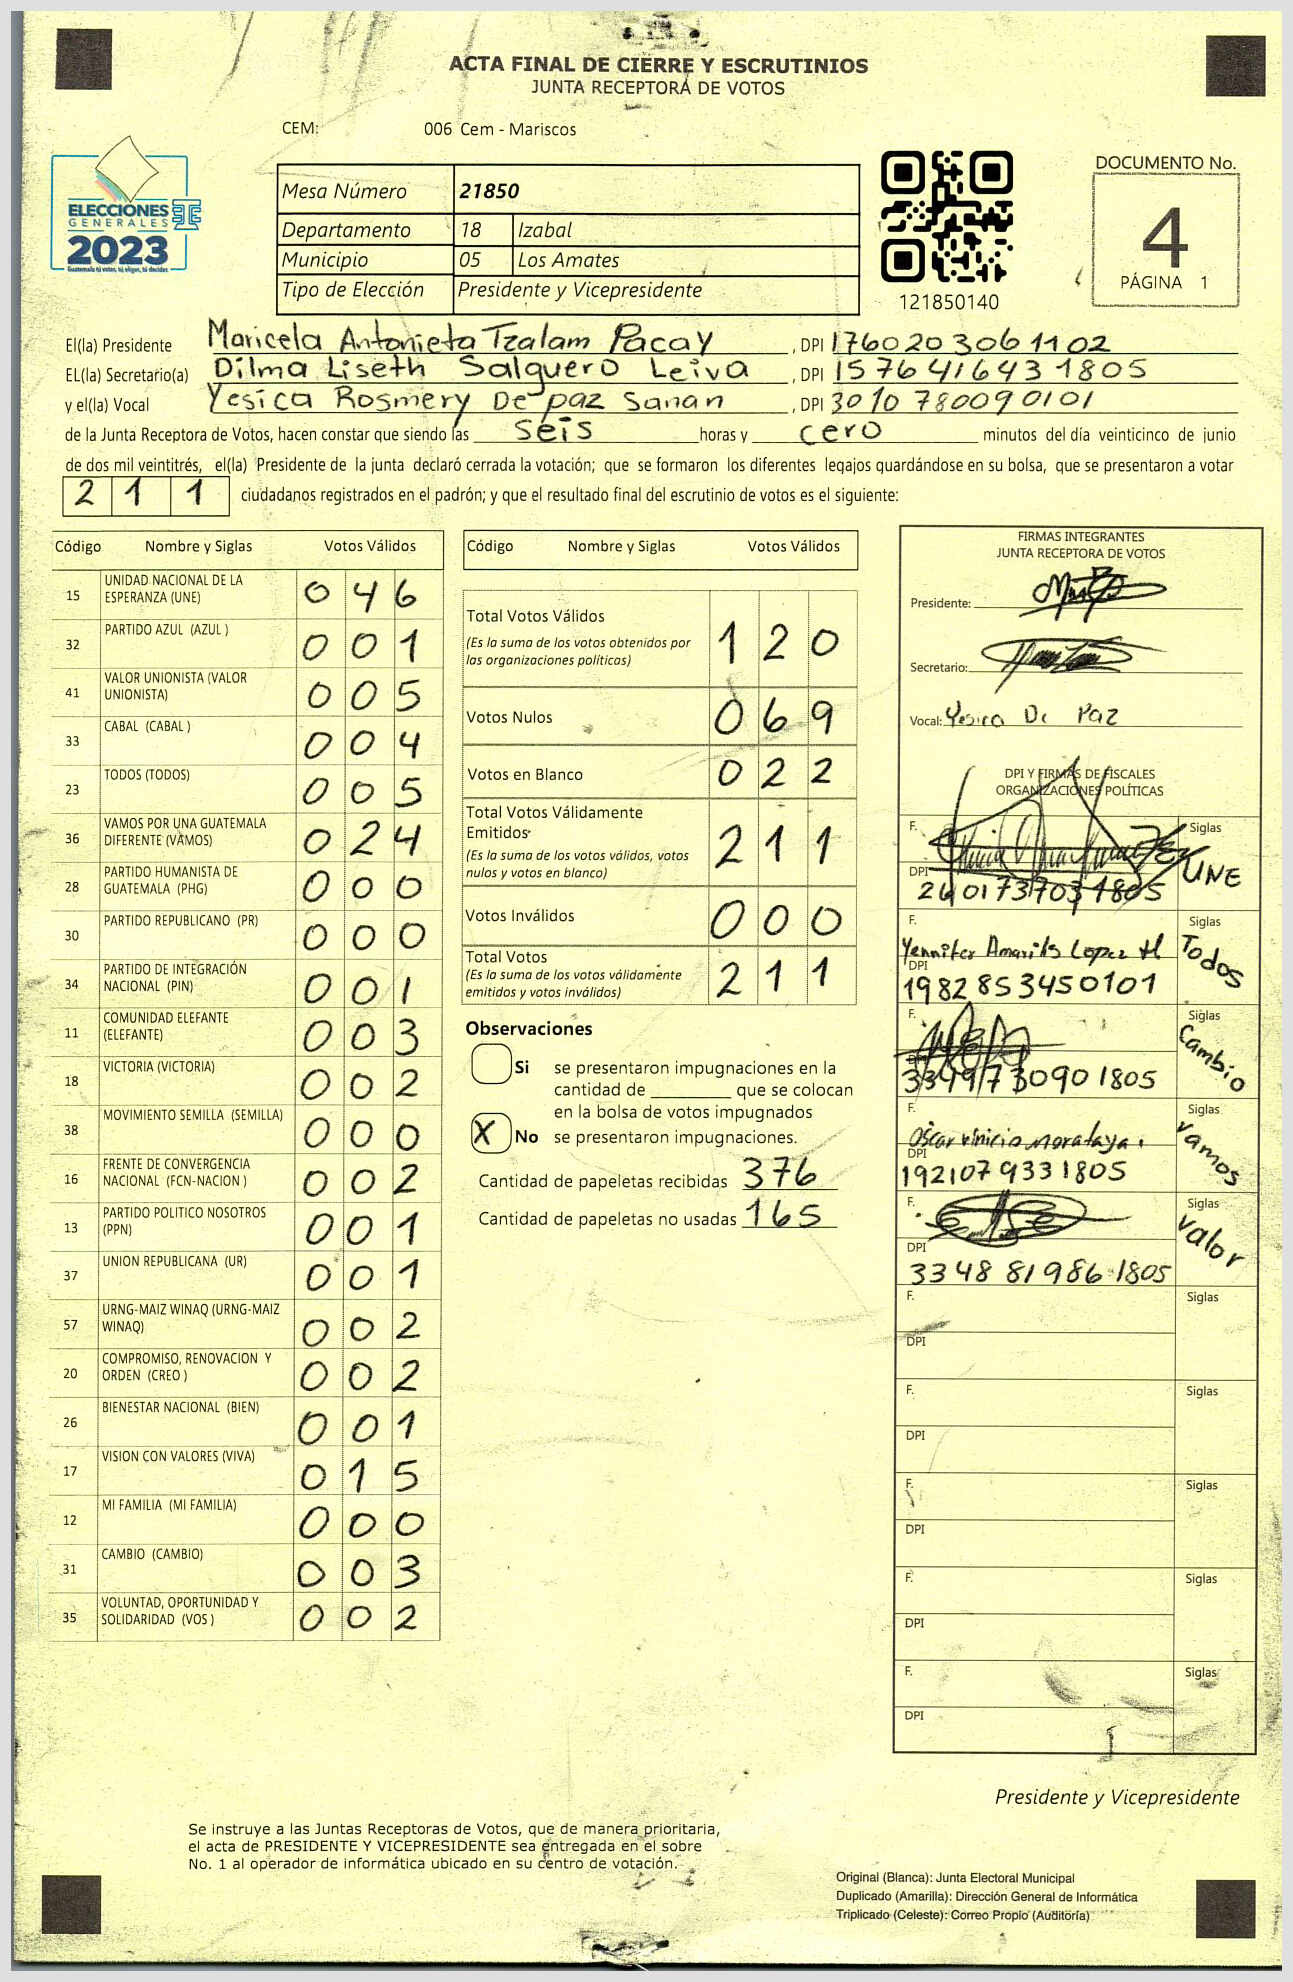 ACTA FINAL DE CIERRE Y ESCRUTINIOS
JUNTA RECEPTORA DE VOTOS
CEM: 006 Cem - Mariscos
ELECCIONES
GENERALES
2023
Guatemala tú votas, tú eliges, tú decides
Mesa Número 21850
Departamento 18 Izabal
Municipio 05 Los Amates
Tipo de Elección Presidente y Vicepresidente
121850140
DOCUMENTO No.
4
PÁGINA 1
El(la) Presidente Maricela Antonieta Tzalam Pacay , DPI 1760203061102
EL(la) Secretario(a) Dilma Liseth Salguero Leiva , DPI 1576416431805
y el(la) Vocal Yesica Rosmery De paz Sanan , DPI 3010780090101
de la Junta Receptora de Votos, hacen constar que siendo las seis horas y cero minutos del día veinticinco de junio
de dos mil veintitrés, el(la) Presidente de la junta declaró cerrada la votación; que se formaron los diferentes legajos guardándose en su bolsa, que se presentaron a votar
211 ciudadanos registrados en el padrón; y que el resultado final del escrutinio de votos es el siguiente:
Código Nombre y Siglas Votos Válidos
15 UNIDAD NACIONAL DE LA ESPERANZA (UNE) 046
32 PARTIDO AZUL (AZUL ) 001
41 VALOR UNIONISTA (VALOR UNIONISTA) 005
33 CABAL (CABAL ) 004
23 TODOS (TODOS) 005
36 VAMOS POR UNA GUATEMALA DIFERENTE (VAMOS) 024
28 PARTIDO HUMANISTA DE GUATEMALA (PHG) 000
30 PARTIDO REPUBLICANO (PR) 000
34 PARTIDO DE INTEGRACIÓN NACIONAL (PIN) 001
11 COMUNIDAD ELEFANTE (ELEFANTE) 003
18 VICTORIA (VICTORIA) 002
38 MOVIMIENTO SEMILLA (SEMILLA) 000
16 FRENTE DE CONVERGENCIA NACIONAL (FCN-NACION ) 002
13 PARTIDO POLITICO NOSOTROS (PPN) 001
37 UNION REPUBLICANA (UR) 001
57 URNG-MAIZ WINAQ (URNG-MAIZ WINAQ) 002
20 COMPROMISO, RENOVACION Y ORDEN (CREO ) 002
26 BIENESTAR NACIONAL (BIEN) 001
17 VISION CON VALORES (VIVA) 015
12 MI FAMILIA (MI FAMILIA) 000
31 CAMBIO (CAMBIO) 003
35 VOLUNTAD, OPORTUNIDAD Y SOLIDARIDAD (VOS ) 002
Código Nombre y Siglas Votos Válidos
Total Votos Válidos 120
(Es la suma de los votos obtenidos por
las organizaciones políticas)
Votos Nulos 069
Votos en Blanco 022
Total Votos Válidamente
Emitidos 211
(Es la suma de los votos válidos, votos
nulos y votos en blanco)
Votos Inválidos 000
Total Votos 211
(Es la suma de los votos válidamente
emitidos y votos inválidos)
Observaciones
Si se presentaron impugnaciones en la
cantidad de ________ que se colocan
en la bolsa de votos impugnados
X No se presentaron impugnaciones.
Cantidad de papeletas recibidas 376
Cantidad de papeletas no usadas 165
FIRMAS INTEGRANTES
JUNTA RECEPTORA DE VOTOS
Presidente:
Secretario:
Vocal: Yesica De Paz
DPI Y FIRMAS DE FISCALES
ORGANIZACIONES POLÍTICAS
F. Siglas UNE
DPI 2601737031805
F. Yennifer Amarilis Lopez Siglas Todos
DPI 1982853450101
F. Siglas Cambio
DPI 3349730901805
F. Oscar vinicio morataya. Siglas vamos
DPI 1921079331805
F. Siglas valor
DPI 3348819861805
F. Siglas
DPI
F. Siglas
DPI
F. Siglas
DPI
F. Siglas
DPI
F. Siglas
DPI
Presidente y Vicepresidente
Se instruye a las Juntas Receptoras de Votos, que de manera prioritaria,
el acta de PRESIDENTE Y VICEPRESIDENTE sea entregada en el sobre
No. 1 al operador de informática ubicado en su centro de votación.
Original (Blanca): Junta Electoral Municipal
Duplicado (Amarilla): Dirección General de Informática
Triplicado (Celeste): Correo Propio (Auditoría)